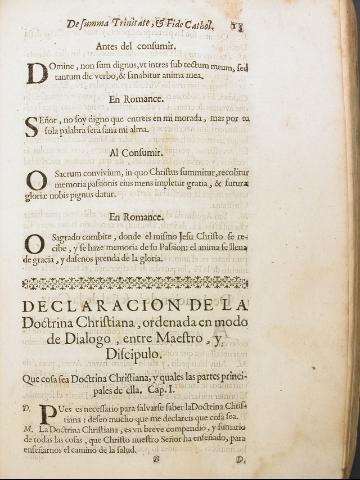 De summa Trinitate, & Fide Cathol.
Antes del consumir.
Domine, non sum dignus, vt intres sub tectum meum, sed
tantum dic verbo, & sanabitur anima mea.
En Romance.
Señor, no soy digno que entreis en mi morada, mas por tu
sola palabra será sana mi alma.
Al Consumir.
O Sacrum convivium, in quo Christus summitur, recolitur
memoria passionis eius mens impletur gratia, & futuræ
gloriæ nobis pignus datur.
En Romance.
O Sagrado combite, donde el mismo Jesu Christo se re-
cibe, y se haze memoria de su Passion: el anima se llena
de gracia, y dasenos prenda de la gloria.
DECLARACION DE LA
Doctrina Christiana, ordenada en modo
de Dialogo, entre Maestro, y
Discipulo.
Que cosa sea Doctrina Christiana, y quales las partes princi-
pales de ella. Cap. I.
D. Pues es necessario para salvarse saber la Doctrina Chris-
tiana: deseo mucho que me declareis que cosa sea.
M. La Doctrina Christiana, es vn breve compendio, y sumario
de todas las cosas, que Christo nuestro Señor ha enseñado, para
enseñarnos el camino de la salud.
B D.